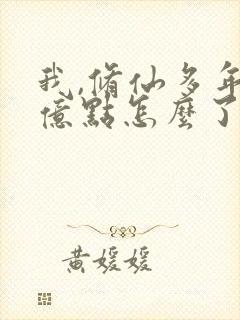 我,脩仙多年
億點怎麼了
黄媛媛